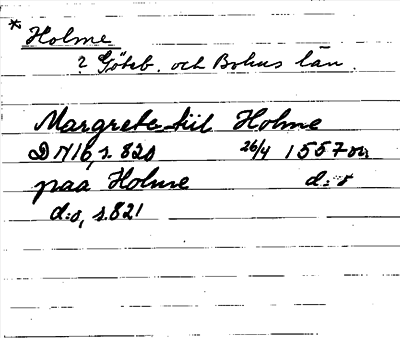 * Holme
? Göteb. och Bohus län.
Margrete till Holme
DN 16, s. 820 26/4 1557 or
paa Holme d:o
d:o, s. 821